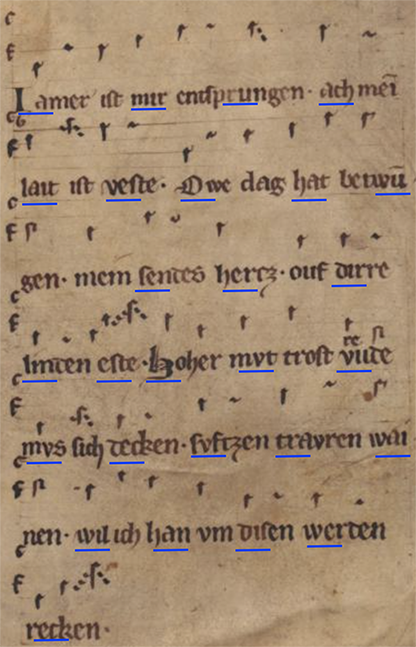 Iamer ist mir entsprungen· ach mei̅
lait ist veste· Owe daz hat betwu̅
gen· mein sendes hercz· ouf dirre
linden este· Hoher myt trost vrude
re
mys sich decken· syftzen trayren wai
nen· wil ich han vm disen werden
recken·